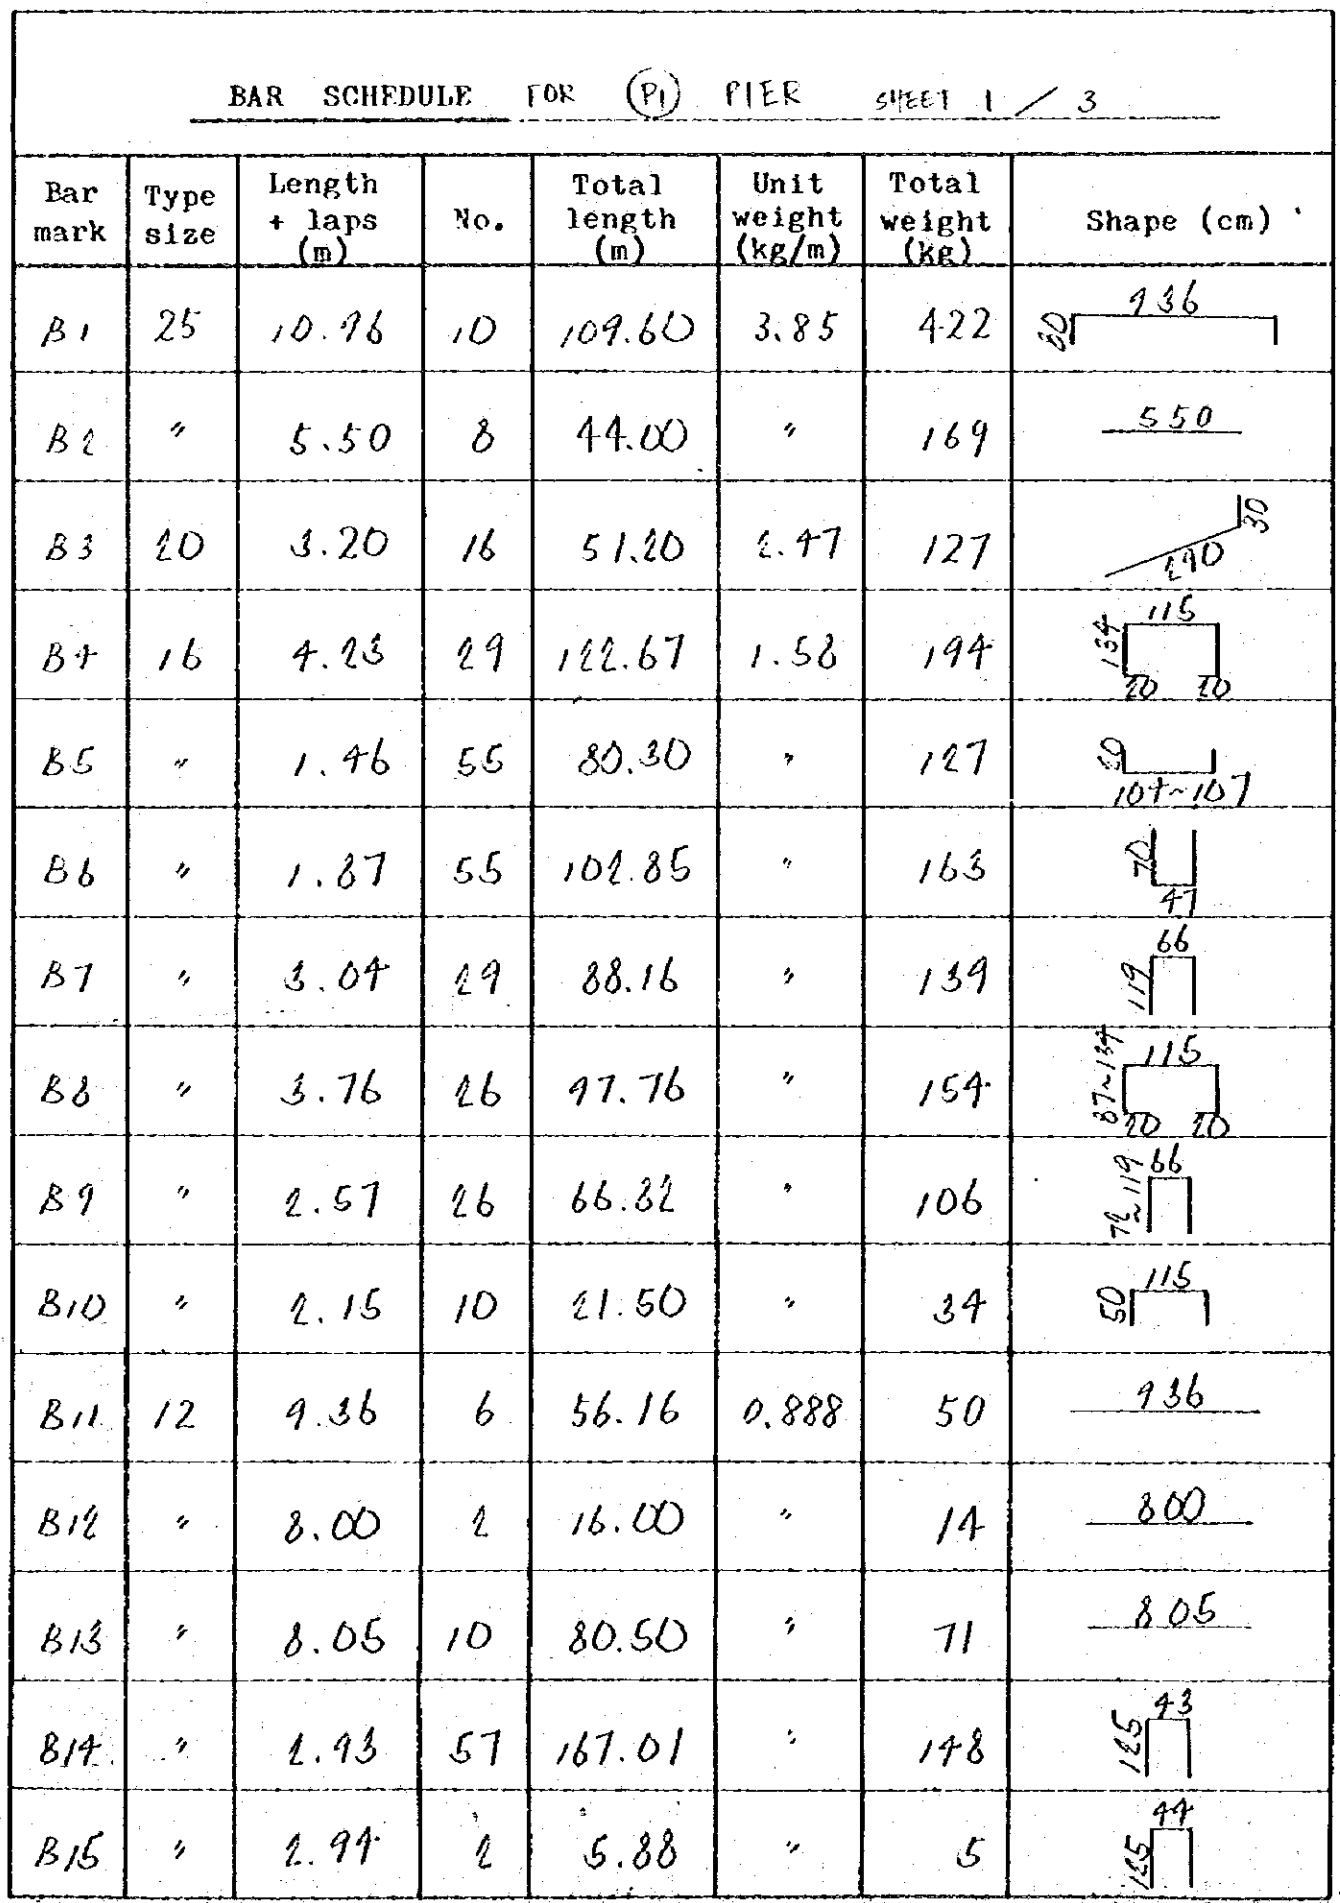 BAR SCHEDULE FOR (P1) PIER SHEET 1 / 3
Bar mark Type size Length + laps (m) No. Total length (m) Unit weight (kg/m) Total weight (kg) Shape (cm)
B1 25 10.96 10 109.60 3.85 422 80 936
B2 〃 5.50 8 44.00 〃 169 550
B3 20 3.20 16 51.20 2.47 127 290 30
B4 16 4.23 29 122.67 1.58 194 134 115 20 20
B5 〃 1.46 55 80.30 〃 127 20 104~107
B6 〃 1.87 55 102.85 〃 163 70 47
B7 〃 3.04 29 88.16 〃 139 119 66
B8 〃 3.76 26 97.76 〃 154 87~134 115 20 20
B9 〃 2.57 26 66.82 〃 106 72~119 66
B10 〃 2.15 10 21.50 〃 34 50 115
B11 12 9.36 6 56.16 0.888 50 936
B12 〃 8.00 2 16.00 〃 14 800
B13 〃 8.05 10 80.50 〃 71 805
B14 〃 2.93 57 167.01 〃 148 125 43
B15 〃 2.94 2 5.88 〃 5 125 44